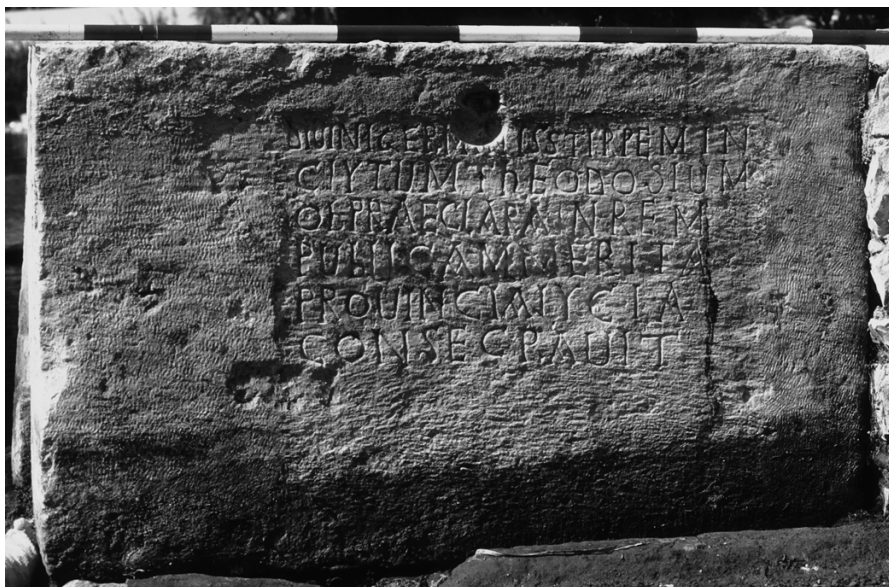 DIUINI GERMINIS STIRPEM IN
CLYTUM THEODOSIUM
OB PRAECLARA IN REM
PUBLICAM MERITA
PROUINCIA LYCIA
CONSECRAUIT